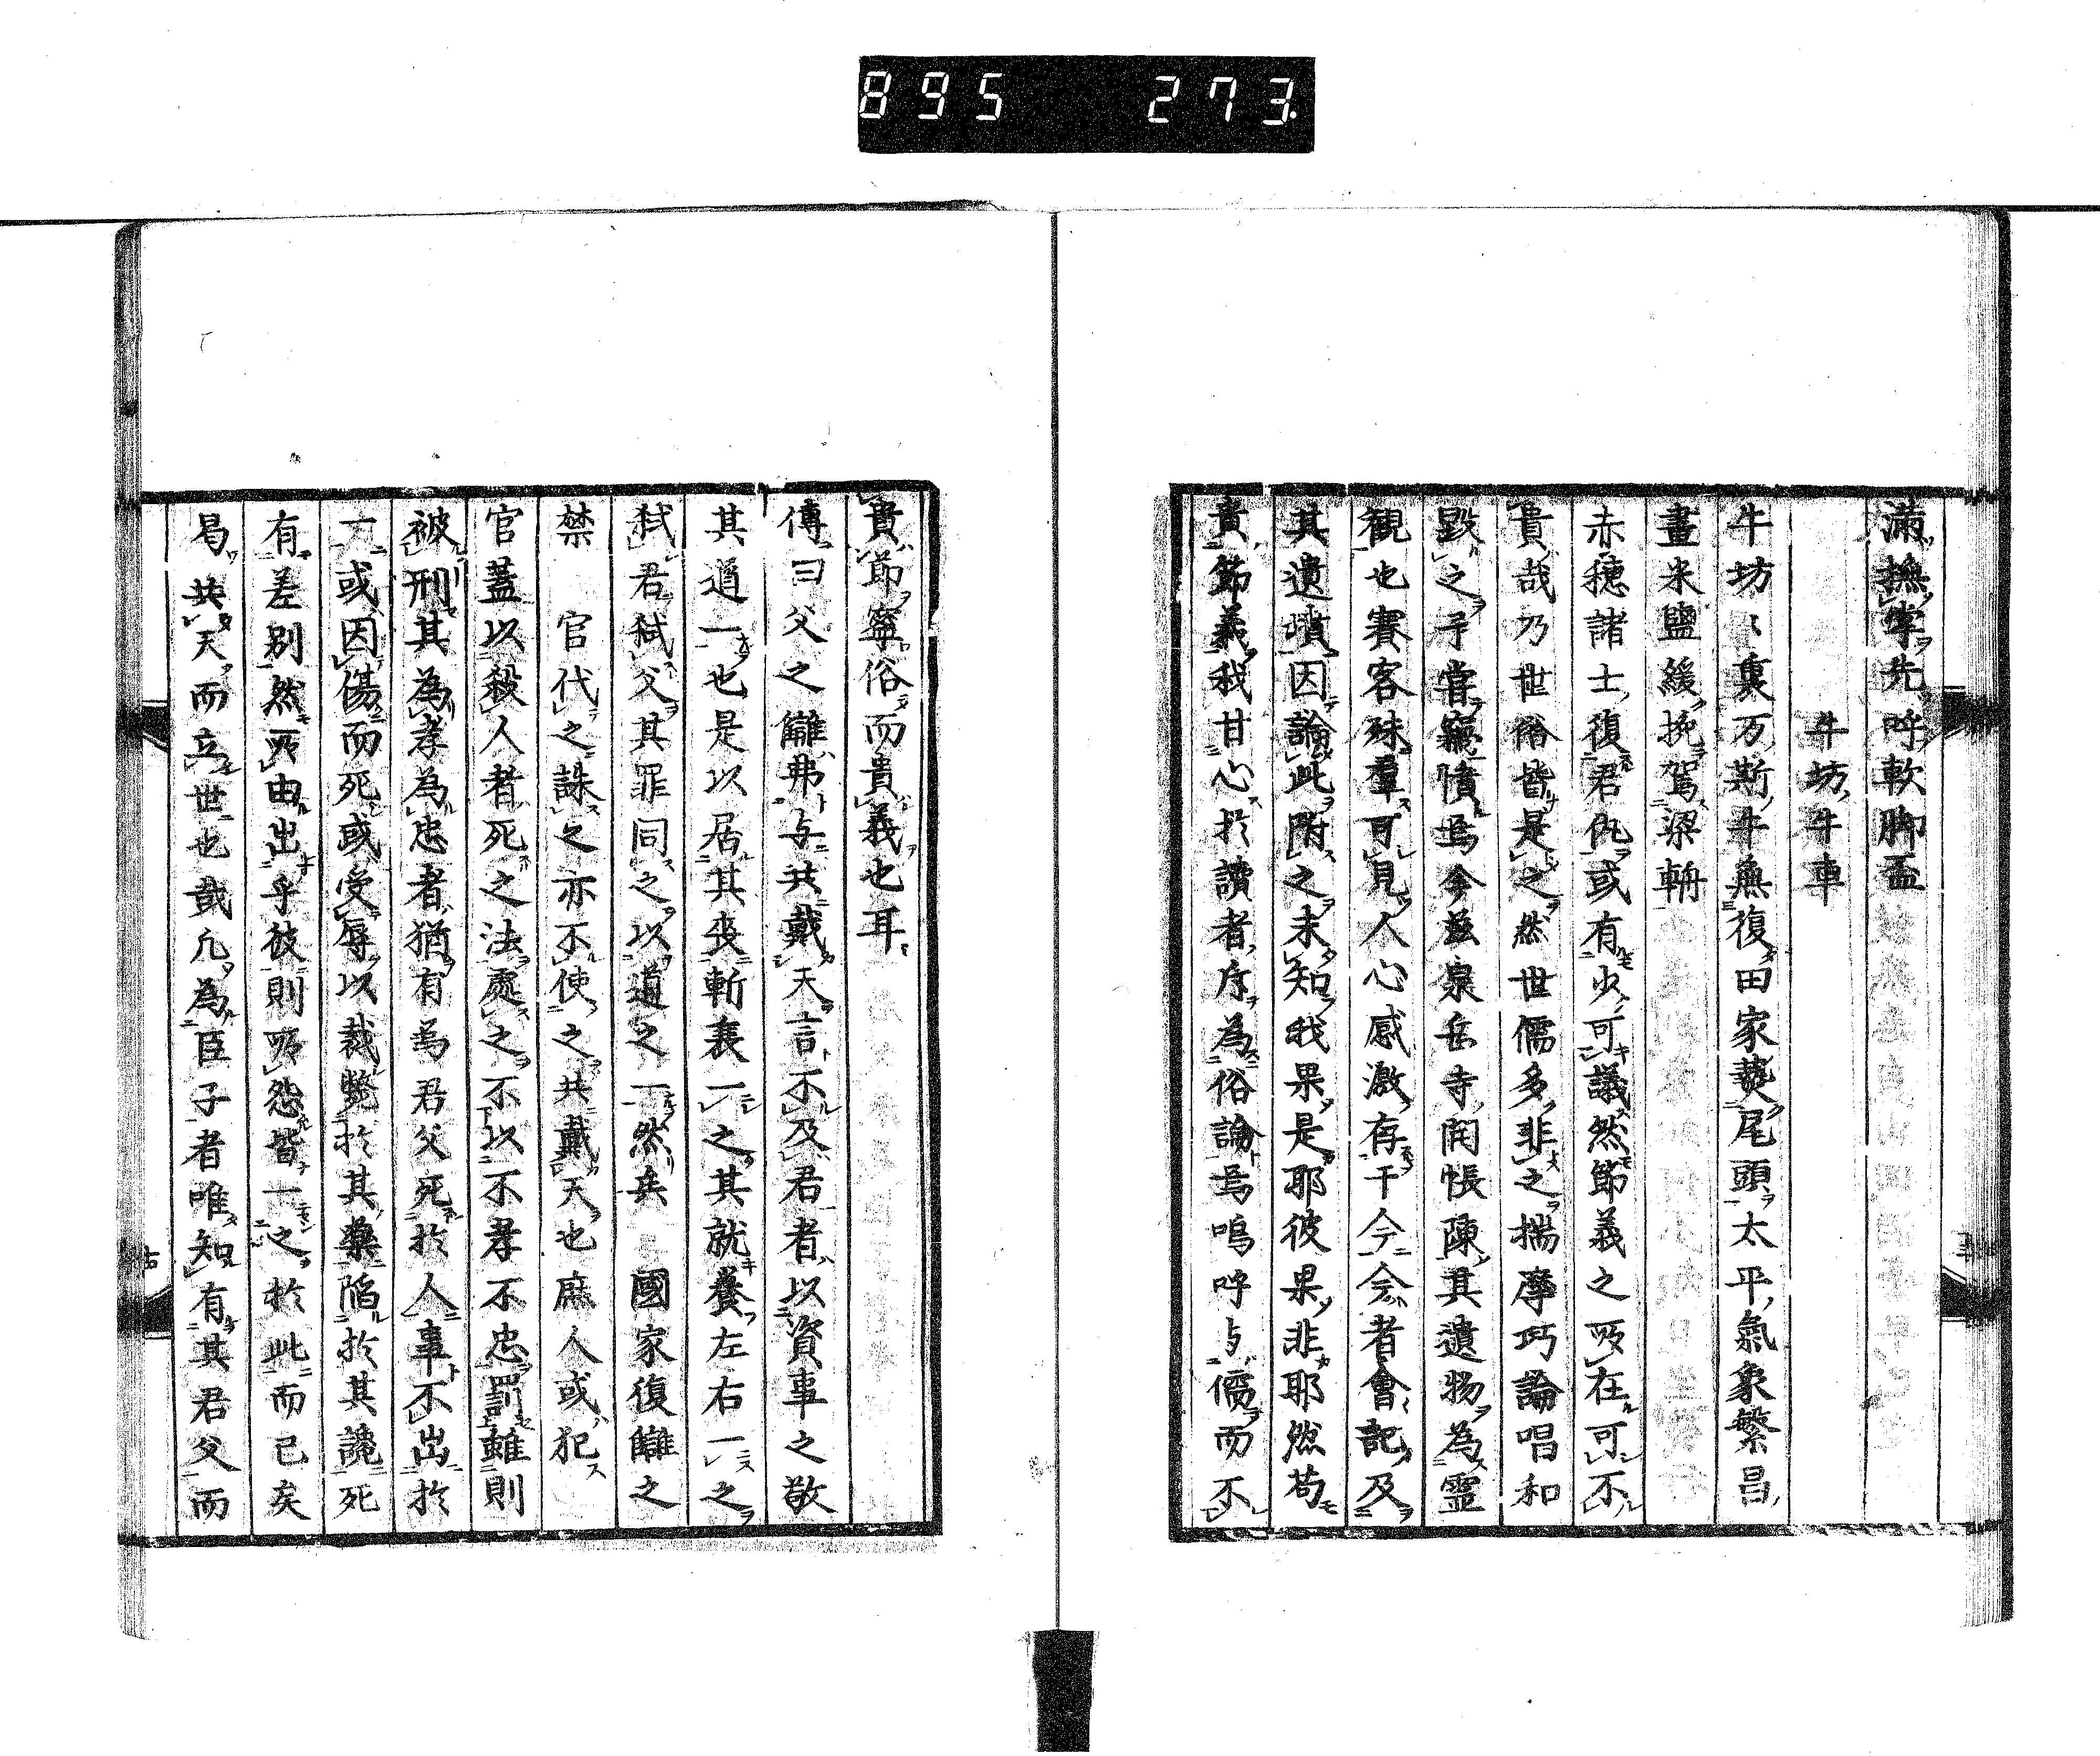 895 273.
滿撫掌先呼軟脚盃
牛坊牛車
牛坊〻裏万斯牛無復田家爇尾頭太平氣象繁昌
畫米鹽緩挽駕梁輈
赤穗諸士復君仇或有少可議然節義之所在可不
貴哉乃世俗皆是之然世儒多非之揣摩巧論唱和
毀之予嘗竊憤焉今茲泉岳寺開帳陳其遺物為霊
觀也賽客殊羣可見人心感激存于今今者會記及
其遺墳因論此附之未知我果是耶彼果非耶然苟
貴節義我甘心於讀者斥為俗論焉嗚呼与儒而不
貴節寧俗而貴義也耳
傳曰父之讎弗与共戴天言不及君者以資事之敬
其道一也是以居其喪斬衰一之其就養左右一之
弑君弑父其罪同之以道之一然矣 國家復讎之
禁 官代之誅之亦不使之共戴天也庶人或犯
官蓋以殺人者死之法處之不以不孝不忠罰雖則
被刑其為孝為忠者猶有焉君父死於人事不出於
一或因傷而死或受辱以裁斃於其藥陷於其讒死
有差別然所由出乎彼則所怨皆一之於此而已矣
曷共天而立世也哉凡為臣子者唯知有其君父而